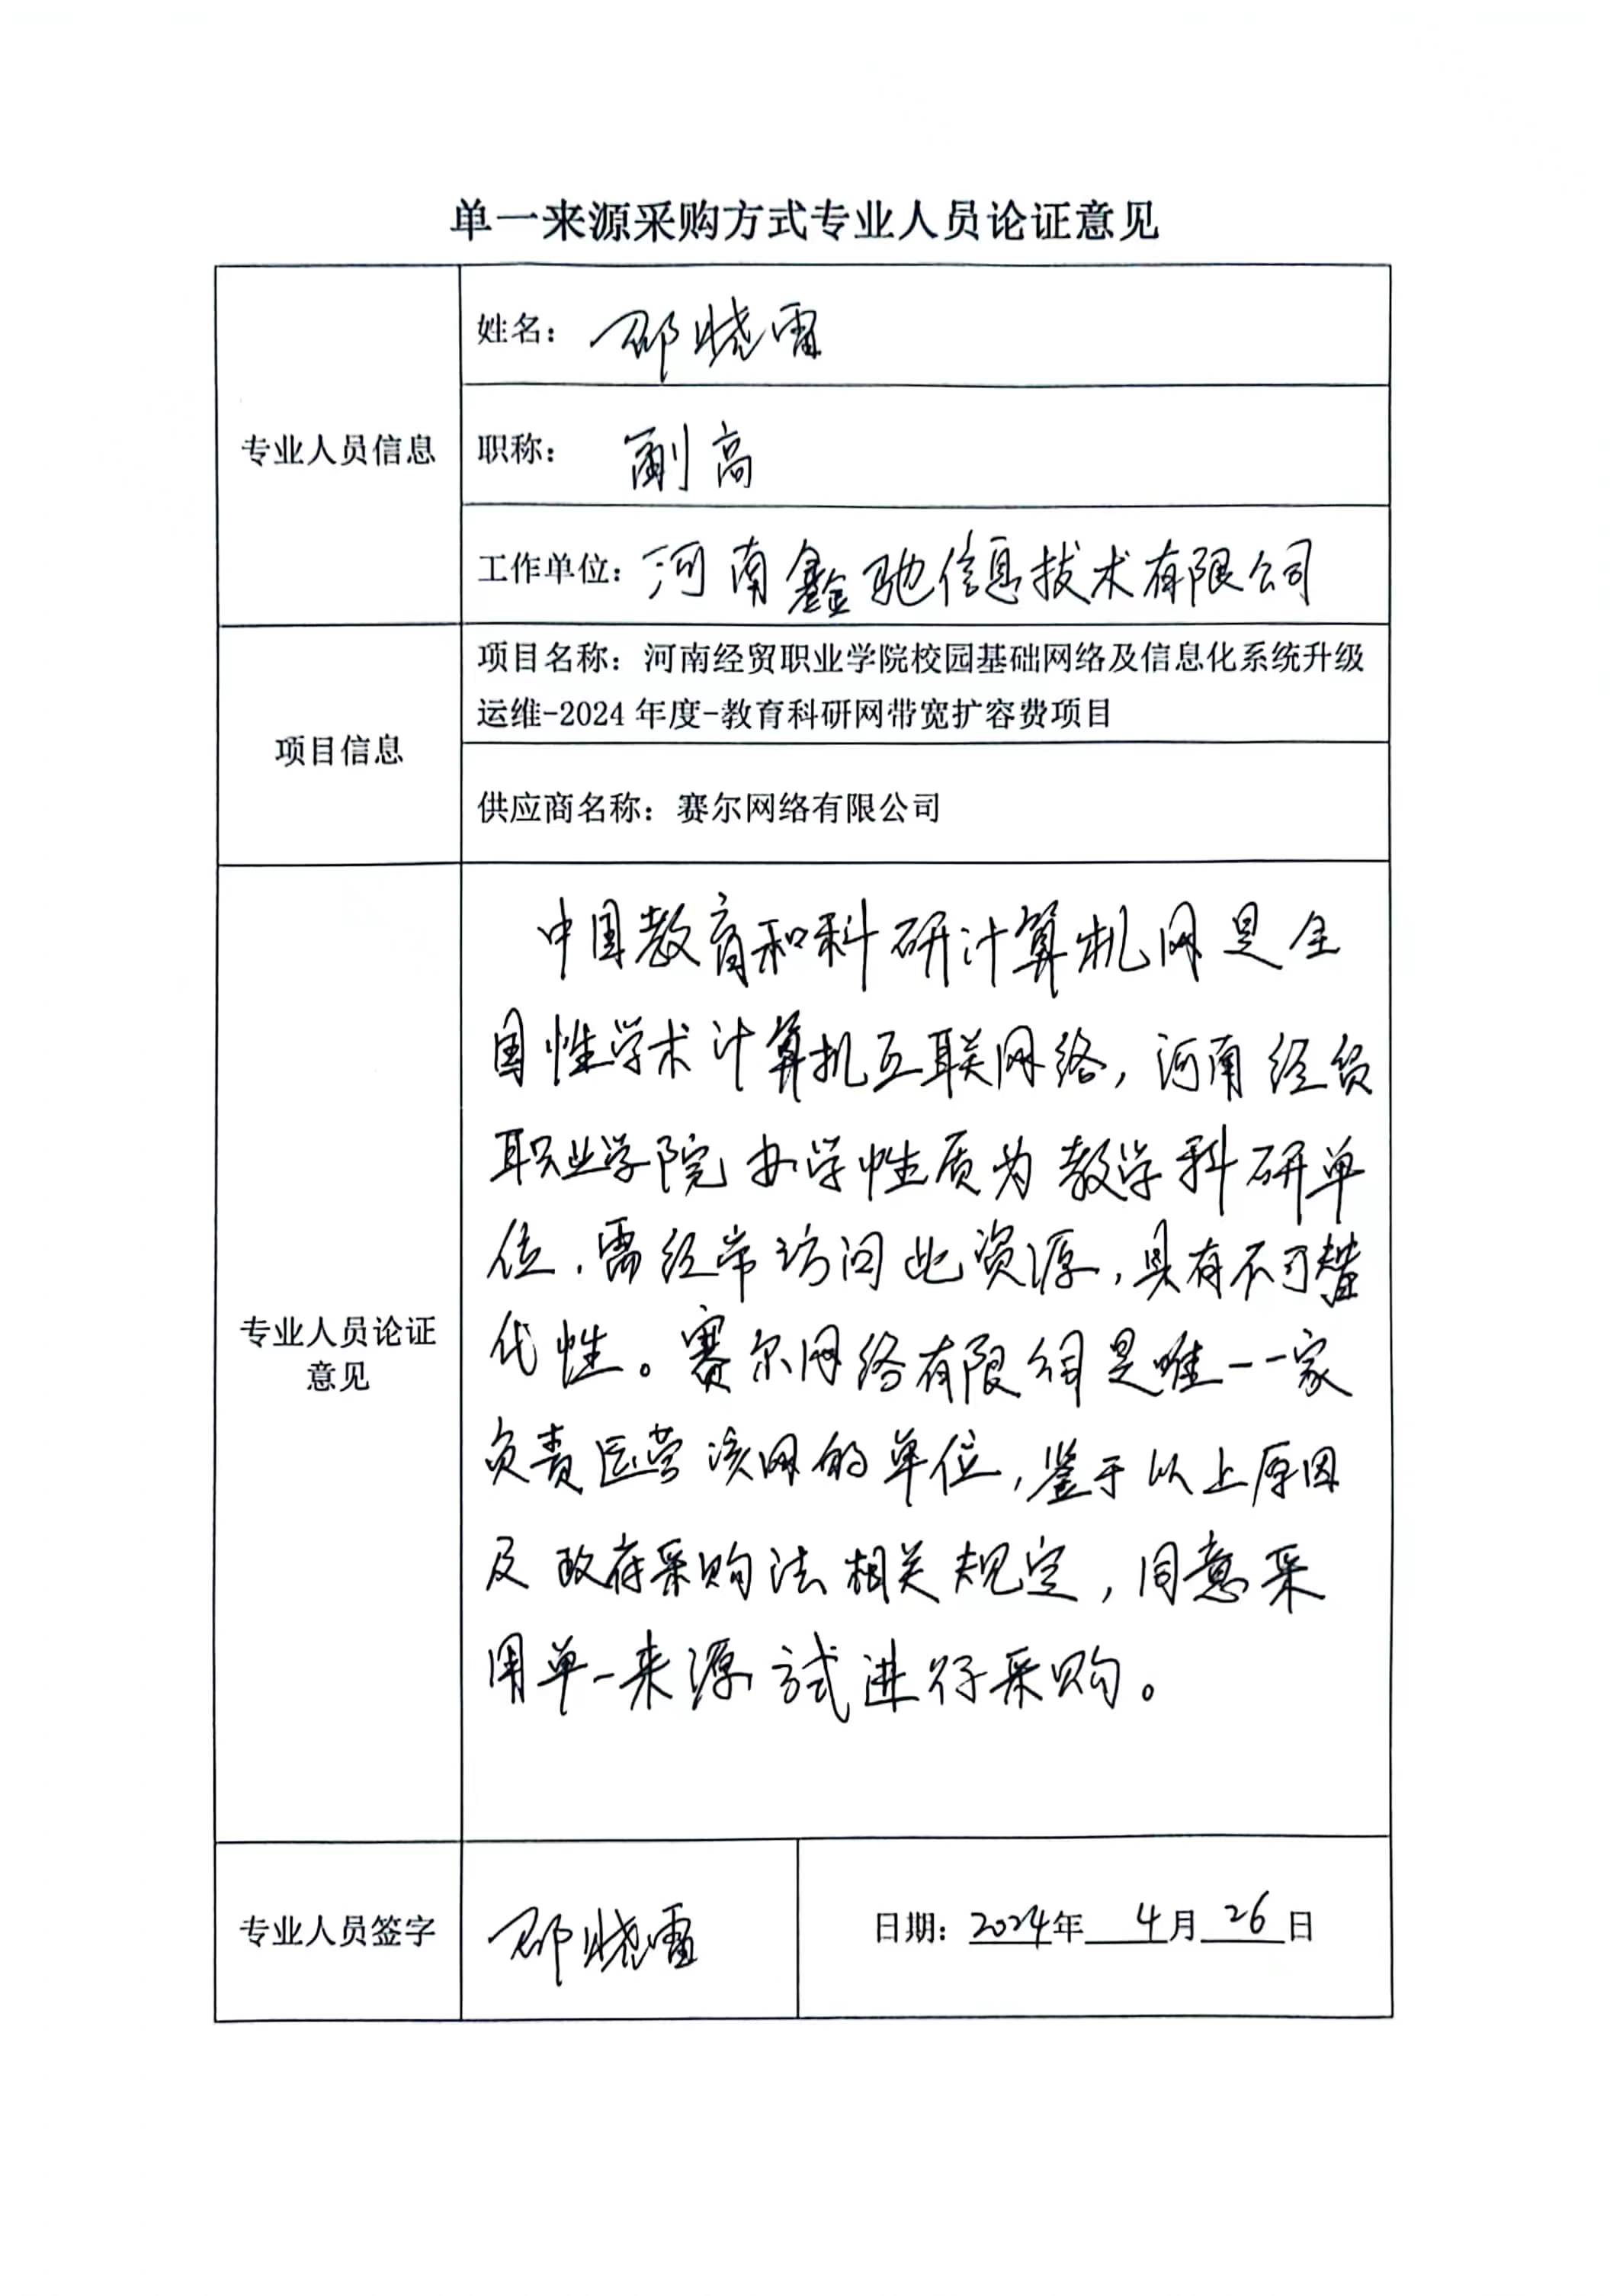 单一来源采购方式专业人员论证意见
专业人员信息
姓名：邵晓雷
职称：副高
工作单位：河南鑫驰信息技术有限公司
项目信息
项目名称：河南经贸职业学院校园基础网络及信息化系统升级
运维-2024年度-教育科研网带宽扩容费项目
供应商名称：赛尔网络有限公司
专业人员论证
意见
中国教育和科研计算机网是全
国性学术计算机互联网络，河南经贸
职业学院办学性质为教学科研单
位，需经常访问此资源，具有不可替
代性。赛尔网络有限公司是唯一一家
负责运营该网的单位，鉴于以上原因
及政府采购法相关规定，同意采
用单一来源方式进行采购。
专业人员签字
邵晓雷
日期：2024年4月26日